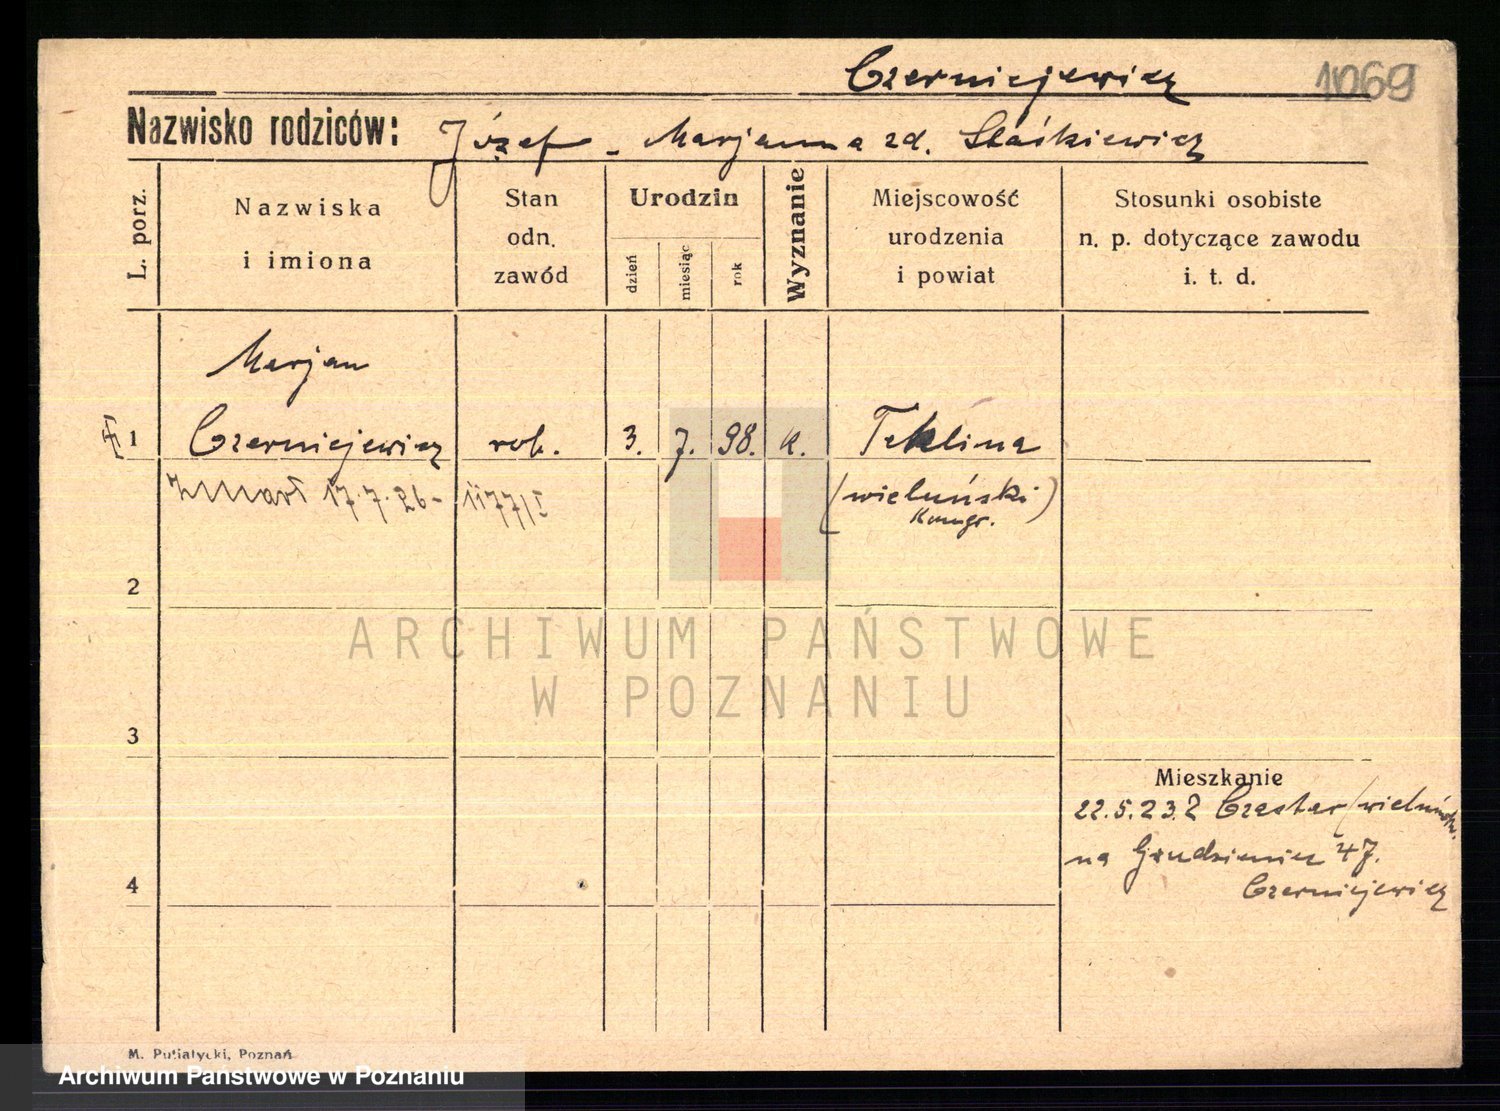 Czerniejewicz 1069
Nazwisko rodziców: Józef - Marjanna zd. Staśkiewicz
L. porz.
Nazwiska
i imiona
Stan
odn.
zawód
Urodzin
dzień
miesiąc
rok
Wyznanie
Miejscowość
urodzenia
i powiat
Stosunki osobiste
n. p. dotyczące zawodu
i. t. d.
Marjan
1 Czerniejewicz rob. 3. 7. 98. k. Teklina
zmarł 17.7.26 - 1177/I (wieluński)
Kongr.
2
ARCHIWUM PAŃSTWOWE
W POZNANIU
3
Mieszkanie
22.5.23. z Czastar (wieluński
na Grudzieniec 47.
4
Czerniejewicz
M. Putiatycki, Poznań
Archiwum Państwowe w Poznaniu